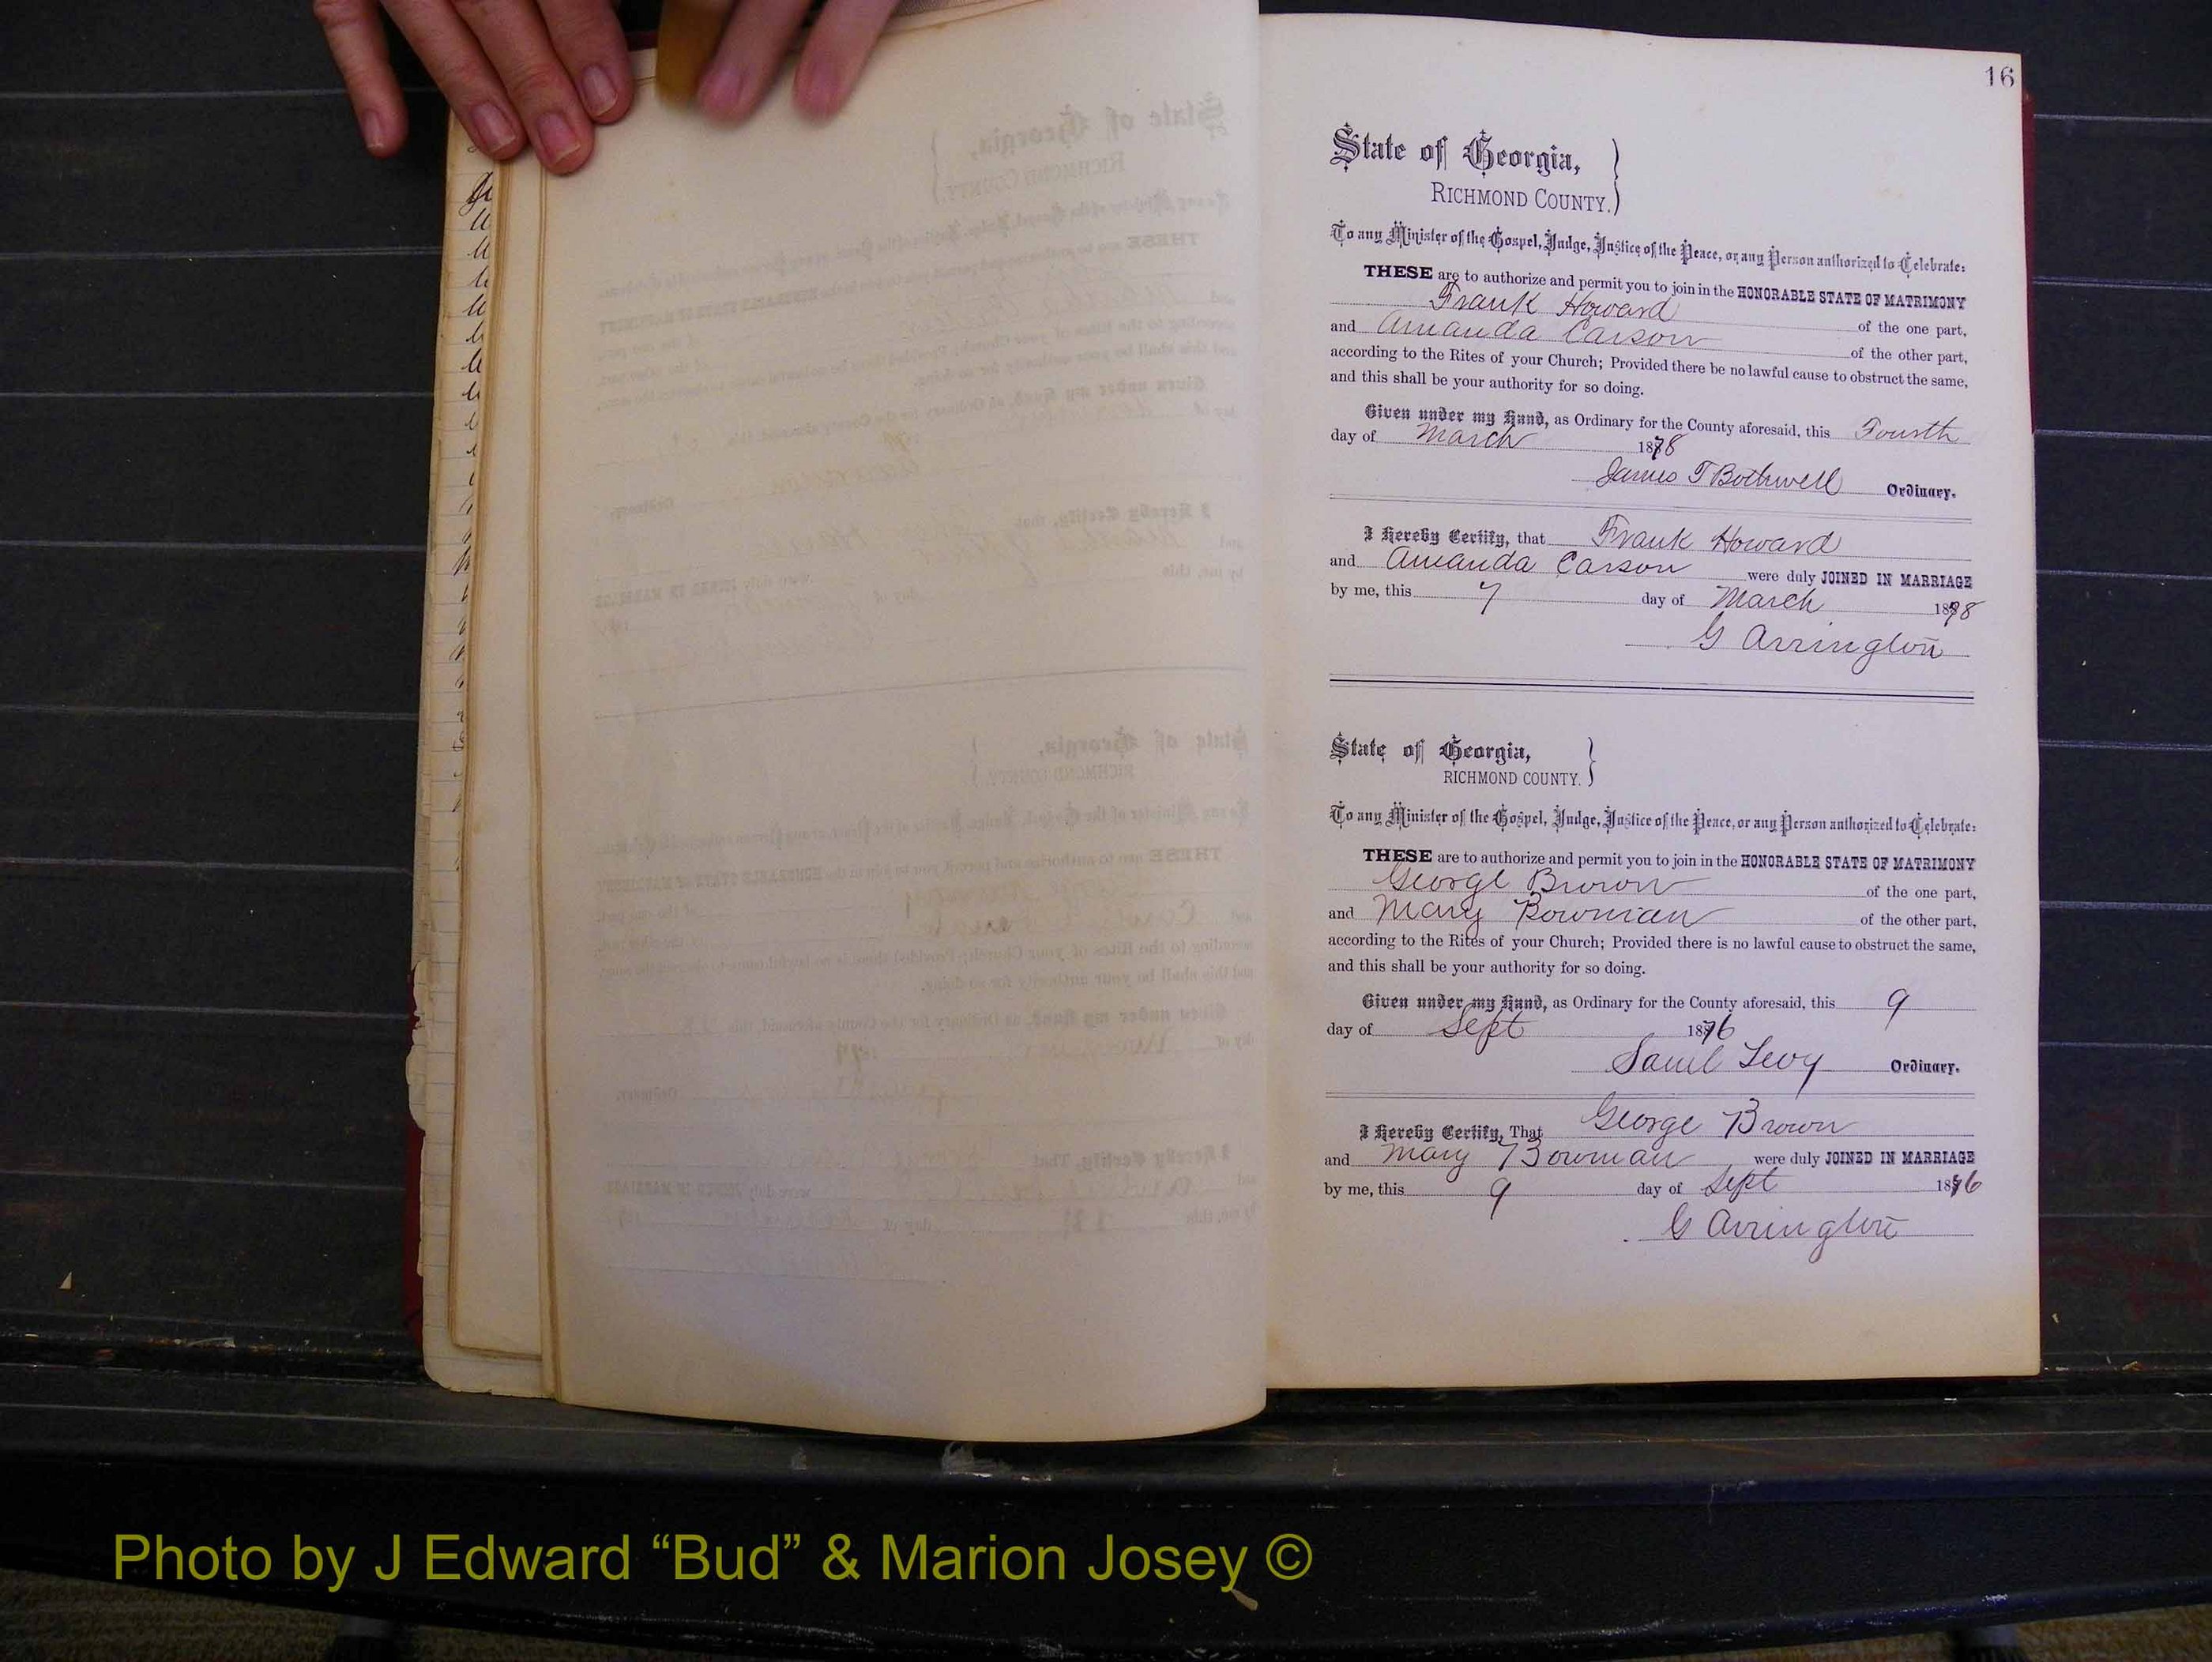 16
State of Georgia,
RICHMOND COUNTY.
To any Minister of the Gospel, Judge, Justice of the Peace, or any Person authorized to Celebrate:
THESE are to authorize and permit you to join in the HONORABLE STATE OF MATRIMONY
Frank Howard of the one part,
and Amanda Carson of the other part,
according to the Rites of your Church; Provided there be no lawful cause to obstruct the same,
and this shall be your authority for so doing.
Given under my Hand, as Ordinary for the County aforesaid, this Fourth
day of March 1878
James T Bothwell Ordinary.
I Hereby Certify, that Frank Howard
and Amanda Carson were duly JOINED IN MARRIAGE
by me, this 7 day of March 1878
G Arrington
State of Georgia,
RICHMOND COUNTY.
To any Minister of the Gospel, Judge, Justice of the Peace, or any Person authorized to Celebrate:
THESE are to authorize and permit you to join in the HONORABLE STATE OF MATRIMONY
George Brown of the one part,
and Mary Bowman of the other part,
according to the Rites of your Church; Provided there is no lawful cause to obstruct the same,
and this shall be your authority for so doing.
Given under my Hand, as Ordinary for the County aforesaid, this 9
day of Sept 1876
Saml Levy Ordinary.
I Hereby Certify, That George Brown
and Mary Bowman were duly JOINED IN MARRIAGE
by me, this 9 day of Sept 1876
G Arrington
Photo by J Edward “Bud” & Marion Josey ©